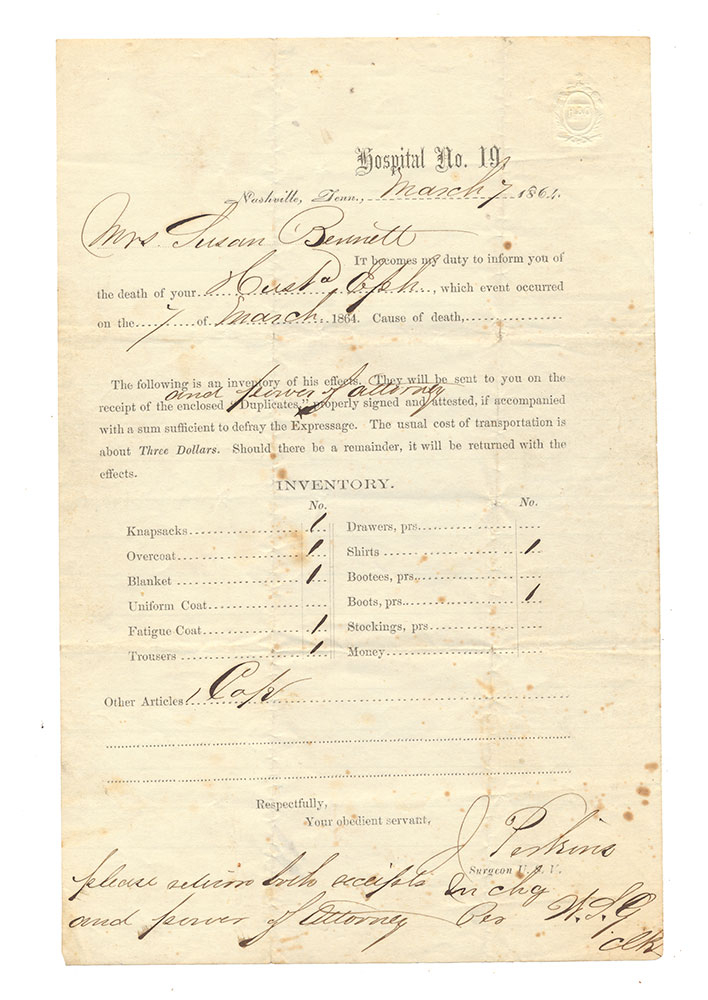 Hospital No. 19
Nashville, Tenn., March 7 1864.
Mrs. Susan Bennett
It becomes my duty to inform you of
the death of your Husbd, Eph., which event occurred
on the 7 of March, 1864. Cause of death,
The following is an inventory of his effects. They will be sent to you on the
and power of attorney
receipt of the enclosed "Duplicates," properly signed and attested, if accompanied
with a sum sufficient to defray the Expressage. The usual cost of transportation is
about Three Dollars. Should there be a remainder, it will be returned with the
effects.
INVENTORY.
No. No.
Knapsacks 1 Drawers, prs.
Overcoat 1 Shirts 1
Blanket 1 Bootees, prs.
Uniform Coat Boots, prs. 1
Fatigue Coat 1 Stockings, prs
Trousers 1 Money
Other Articles, 1 Cap
Respectfully,
Your obedient servant,
J Perkins
Surgeon U.S.V.
please return both receipts In chg
and power of Attorney Per W.S.G
clk